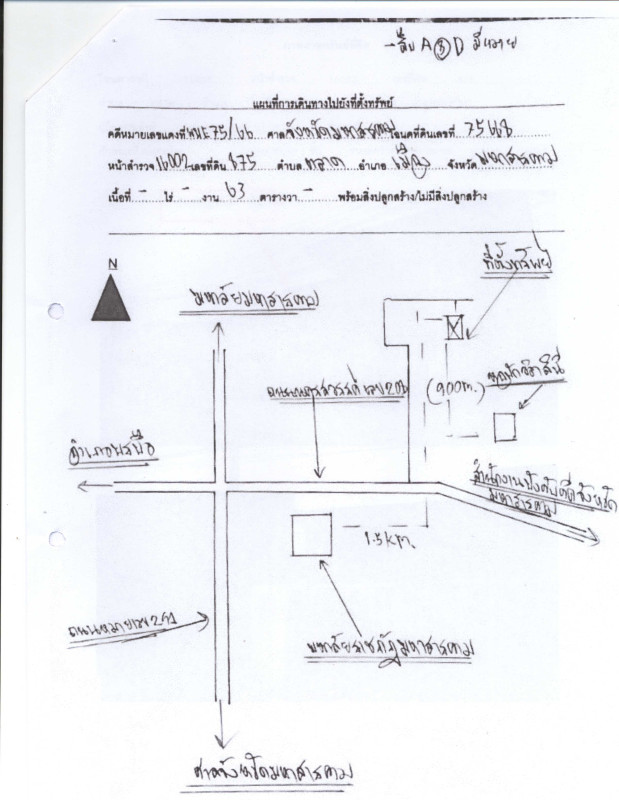 แผนที่การเดินทางไปยังที่ตั้งทรัพย์
คดีหมายเลขแดงที่ ผบE75/66 ศาล จังหวัดมหาสารคาม โฉนดที่ดินเลขที่ 75668
หน้าสำรวจ 16002 เลขที่ดิน 875 ตำบล ตลาด อำเภอ เมือง จังหวัด มหาสารคาม
เนื้อที่ - ไร่ - งาน 63 ตารางวา - พร้อมสิ่งปลูกสร้าง/ไม่มีสิ่งปลูกสร้าง
N
ที่ตั้งทรัพย์
มหาลัยมหาสารคาม
(900m.)
อำเภอบรบือ
สำนักงานบังคับคดีจังหวัด
มหาสารคาม
1.5 km.
มหาลัยราชภัฏมหาสารคาม
ศาลจังหวัดมหาสารคาม